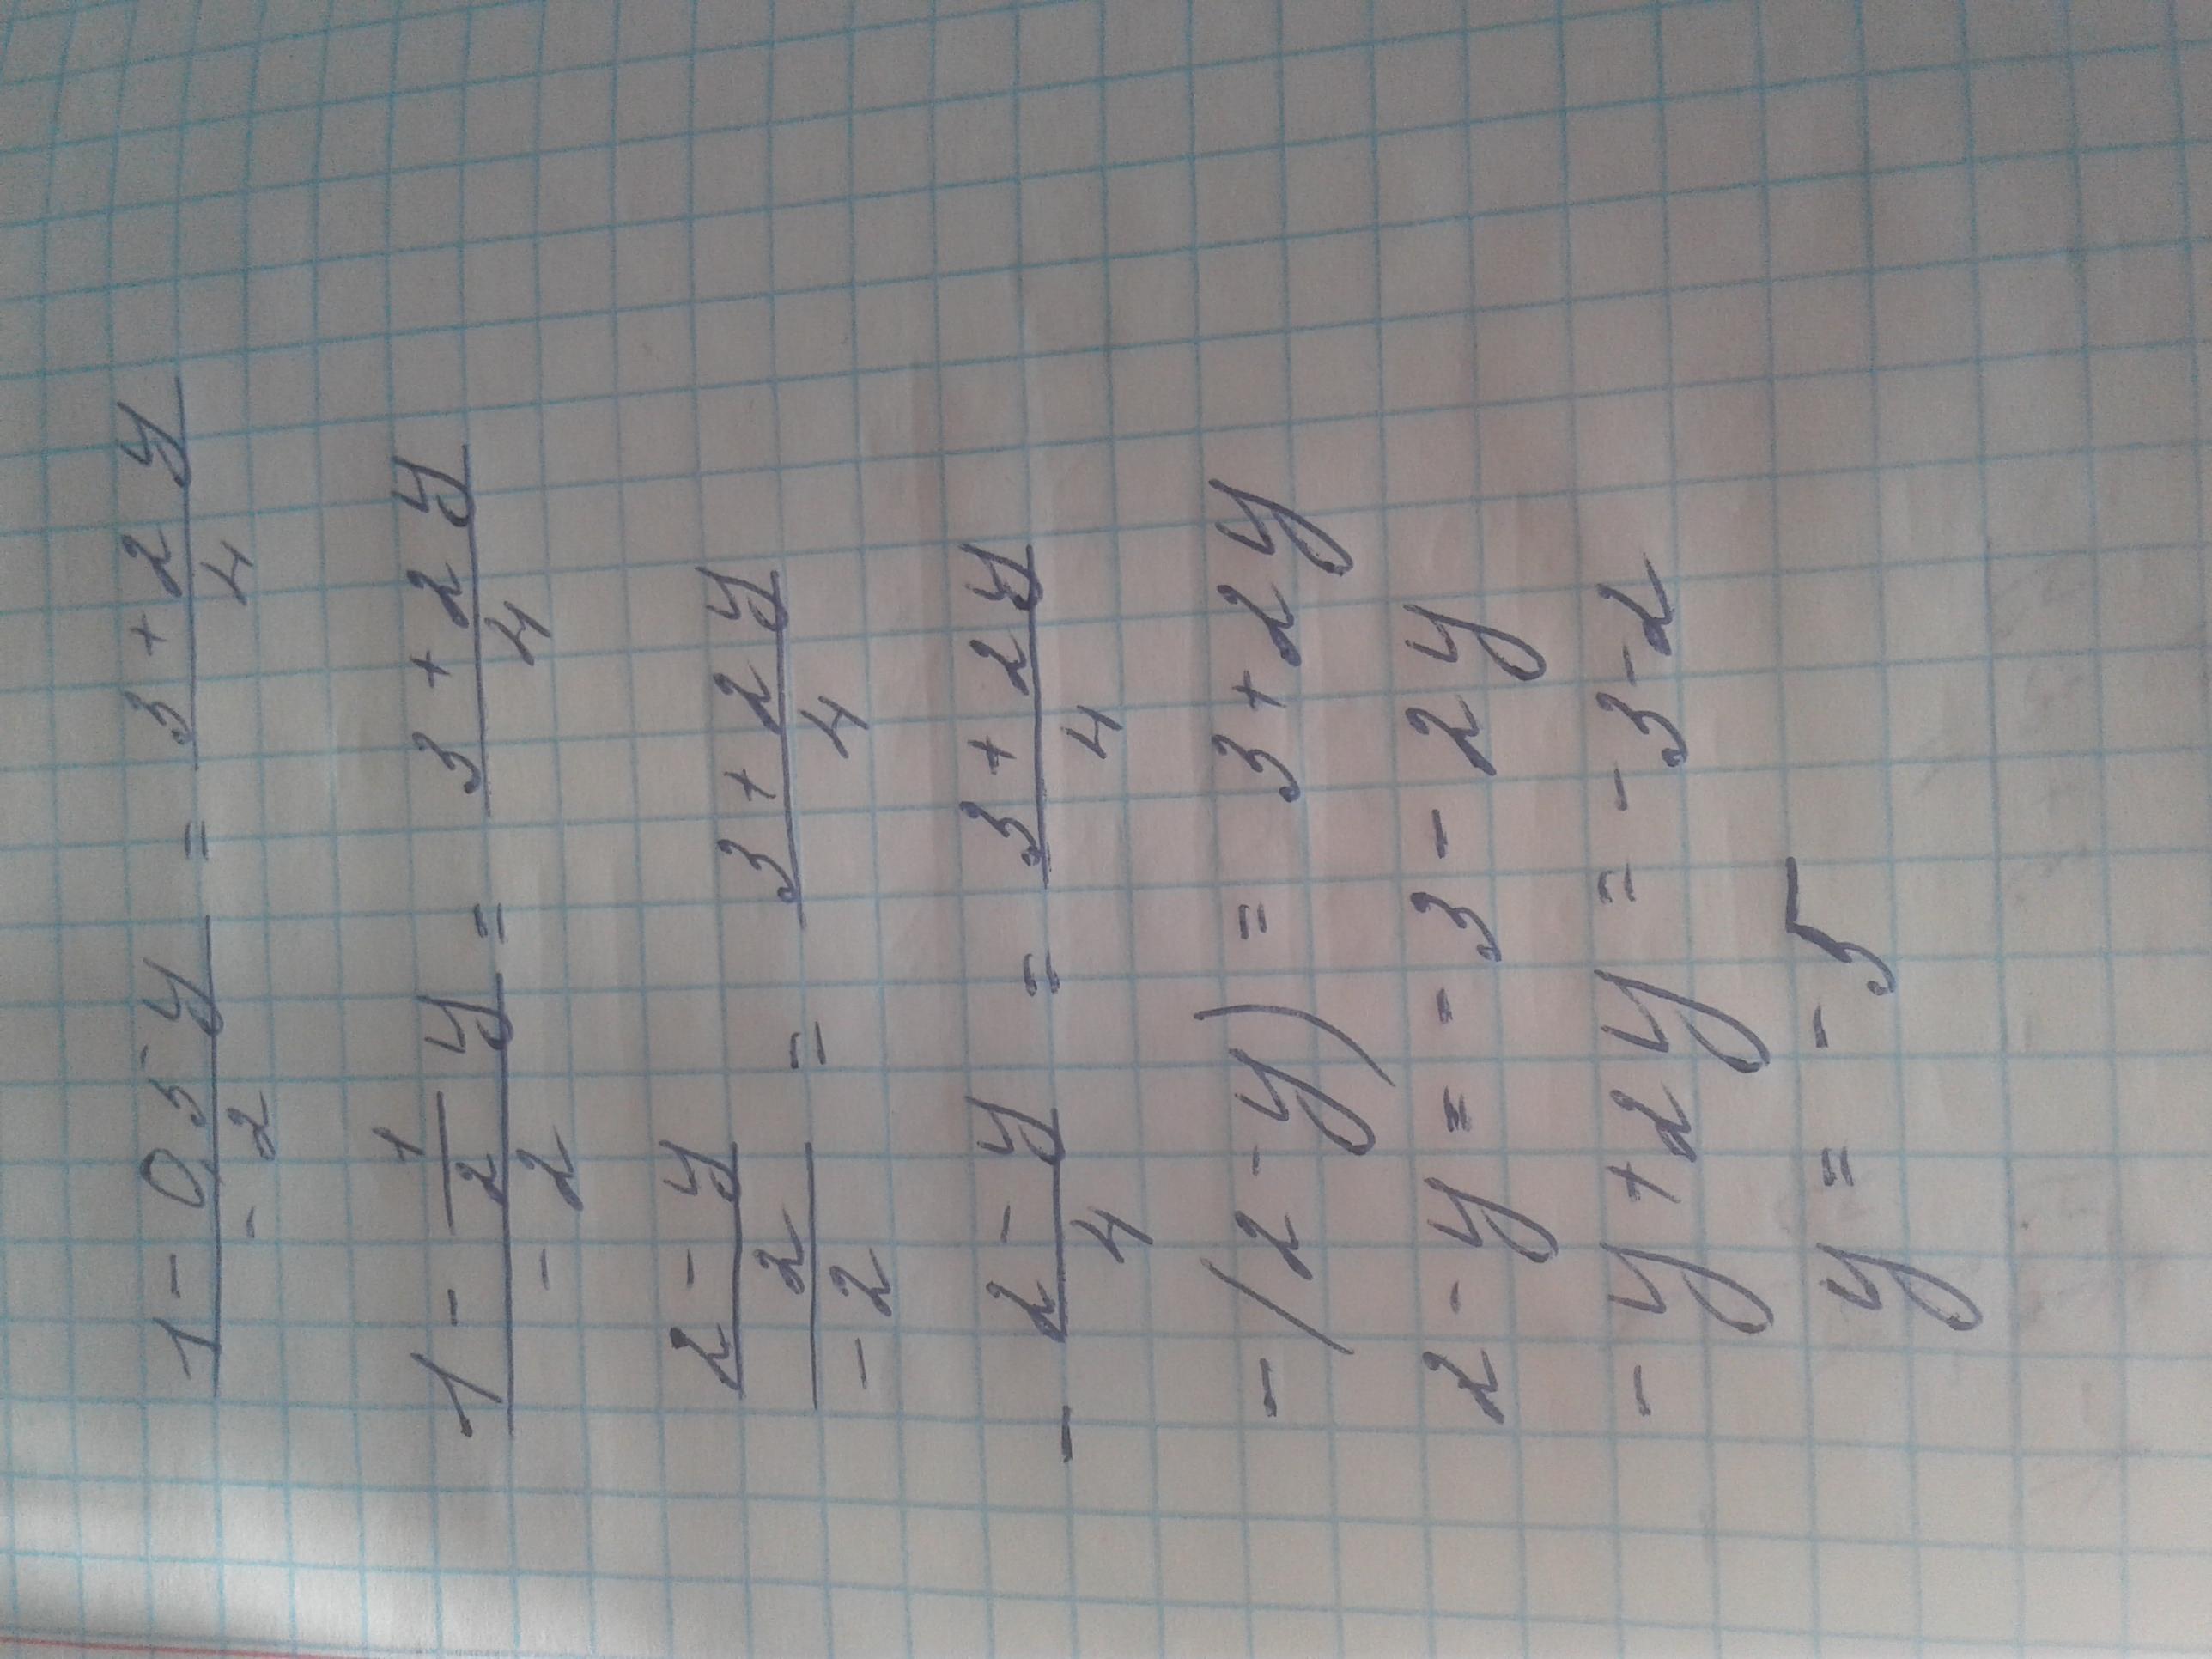 (1 - 0,5y)/(-2) = (3 + 2y)/4
(1 - (1/2)y)/(-2) = (3 + 2y)/4
((2 - y)/2)/(-2) = (3 + 2y)/4
- (2 - y)/4 = (3 + 2y)/4
- (2 - y) = 3 + 2y
2 - y = - 3 - 2y
- y + 2y = - 3 - 2
y = - 5